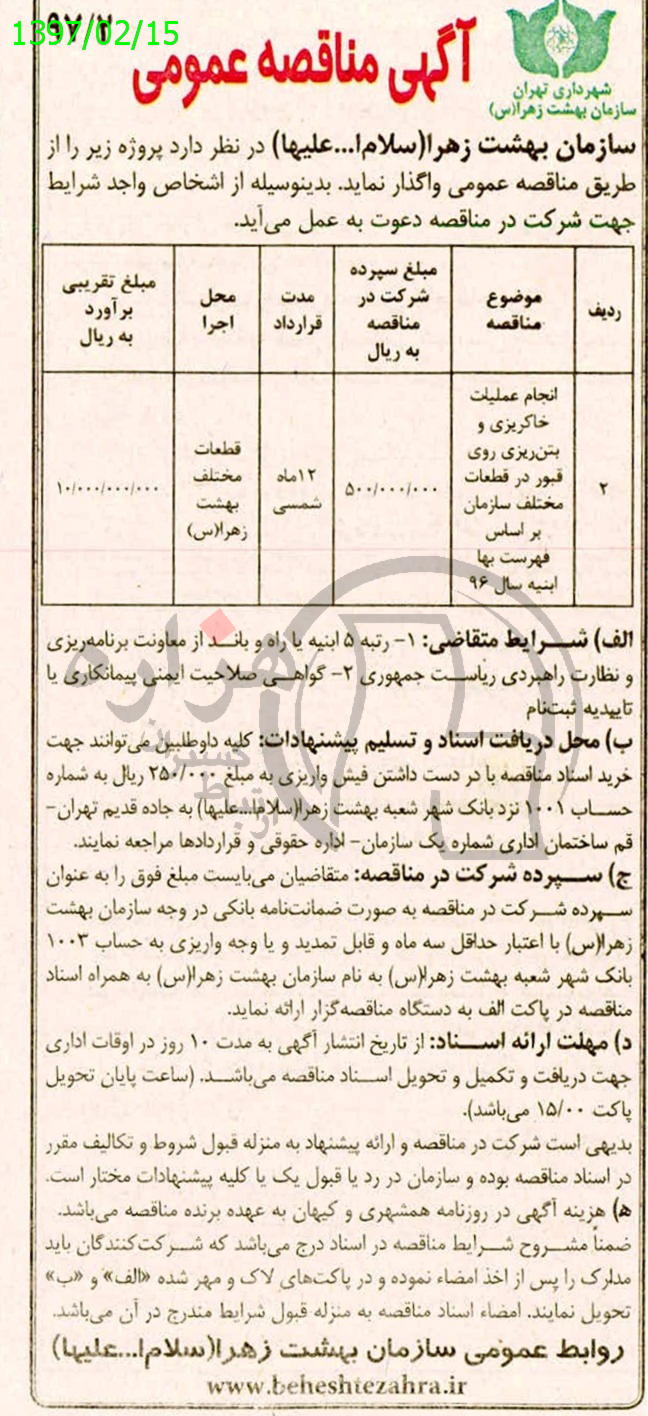 1397/02/15
۹۷/۲
آگهی مناقصه عمومی
شهرداری تهران
سازمان بهشت زهرا(س)
سازمان بهشت زهرا(سلام‌ا...علیها) در نظر دارد پروژه زیر را از
طریق مناقصه عمومی واگذار نماید. بدینوسیله از اشخاص واجد شرایط
جهت شرکت در مناقصه دعوت به عمل می‌آید.
ردیف
موضوع
مناقصه
مبلغ سپرده
شرکت در
مناقصه
به ریال
مدت
قرارداد
محل
اجرا
مبلغ تقریبی
برآورد
به ریال
۲
انجام عملیات
خاکریزی و
بتن‌ریزی روی
قبور در قطعات
مختلف سازمان
بر اساس
فهرست بها
ابنیه سال ۹۶
۵۰۰/۰۰۰/۰۰۰
۱۲ماه
شمسی
قطعات
مختلف
بهشت
زهرا(س)
۱۰/۰۰۰/۰۰۰/۰۰۰
الف) شرایط متقاضی: ۱- رتبه ۵ ابنیه یا راه و باند از معاونت برنامه‌ریزی
و نظارت راهبردی ریاست جمهوری ۲- گواهی صلاحیت ایمنی پیمانکاری یا
تاییدیه ثبت‌نام
ب) محل دریافت اسناد و تسلیم پیشنهادات: کلیه داوطلبین می‌توانند جهت
خرید اسناد مناقصه با در دست داشتن فیش واریزی به مبلغ ۲۵۰/۰۰۰ ریال به شماره
حساب ۱۰۰۱ نزد بانک شهر شعبه بهشت زهرا(سلام‌ا...علیها) به جاده قدیم تهران-
قم ساختمان اداری شماره یک سازمان- اداره حقوقی و قراردادها مراجعه نمایند.
ج) سپرده شرکت در مناقصه: متقاضیان می‌بایست مبلغ فوق را به عنوان
سپرده شرکت در مناقصه به صورت ضمانت‌نامه بانکی در وجه سازمان بهشت
زهرا(س) با اعتبار حداقل سه ماه و قابل تمدید و یا وجه واریزی به حساب ۱۰۰۳
بانک شهر شعبه بهشت زهرا(س) به نام سازمان بهشت زهرا(س) به همراه اسناد
مناقصه در پاکت الف به دستگاه مناقصه‌گزار ارائه نماید.
د) مهلت ارائه اسناد: از تاریخ انتشار آگهی به مدت ۱۰ روز در اوقات اداری
جهت دریافت و تکمیل و تحویل اسناد مناقصه می‌باشد. (ساعت پایان تحویل
پاکت ۱۵/۰۰ می‌باشد).
بدیهی است شرکت در مناقصه و ارائه پیشنهاد به منزله قبول شروط و تکالیف مقرر
در اسناد مناقصه بوده و سازمان در رد یا قبول یک یا کلیه پیشنهادات مختار است.
ه) هزینه آگهی در روزنامه همشهری و کیهان به عهده برنده مناقصه می‌باشد.
ضمناً مشروح شرایط مناقصه در اسناد درج می‌باشد که شرکت‌کنندگان باید
مدارک را پس از اخذ امضاء نموده و در پاکت‌های لاک و مهر شده «الف» و «ب»
تحویل نمایند. امضاء اسناد مناقصه به منزله قبول شرایط مندرج در آن می‌باشد.
روابط عمومی سازمان بهشت زهرا(سلام‌ا...علیها)
www.beheshtezahra.ir